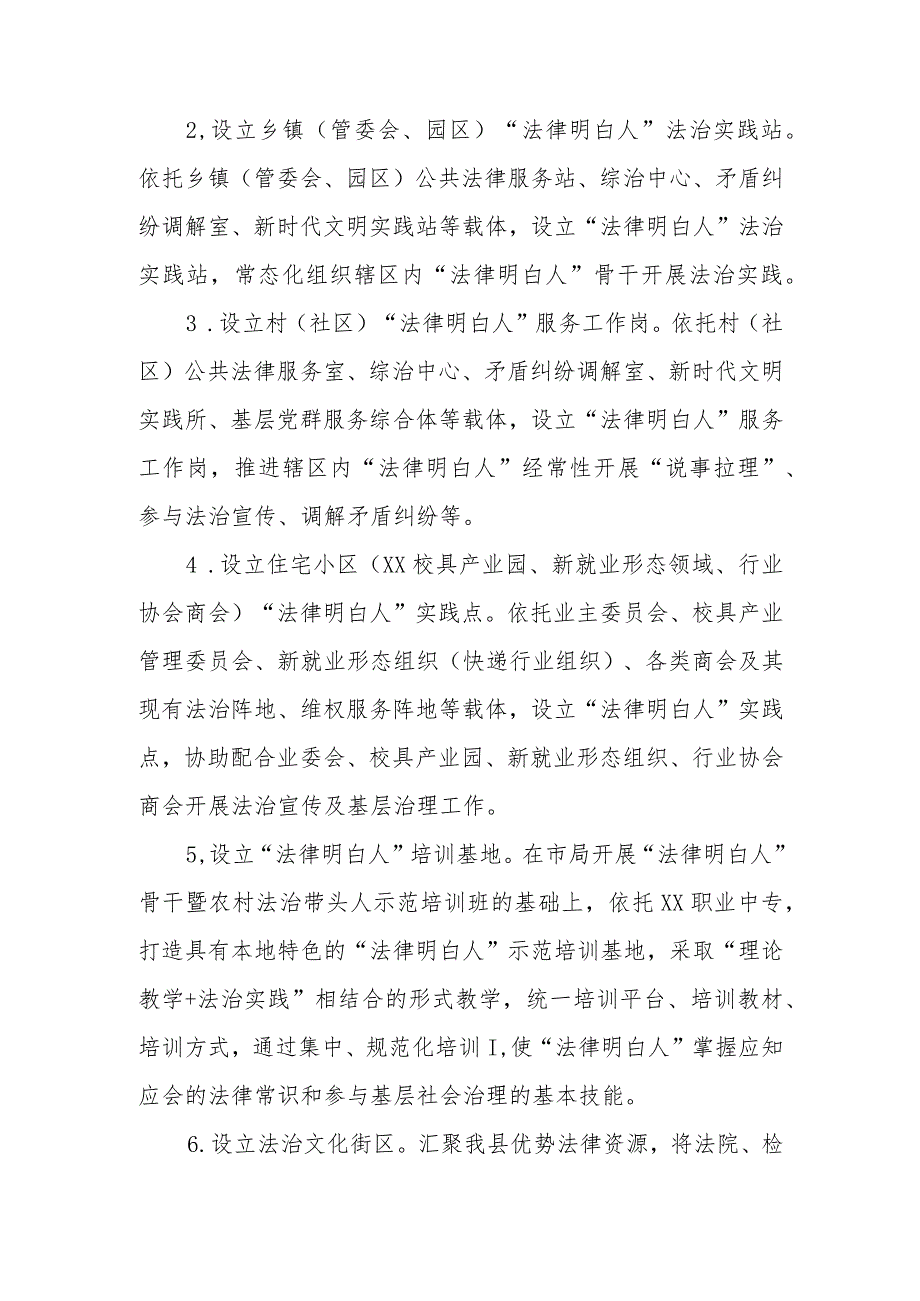 2,设立乡镇（管委会、园区）“法律明白人”法治实践站。
依托乡镇（管委会、园区）公共法律服务站、综治中心、矛盾纠
纷调解室、新时代文明实践站等载体，设立“法律明白人”法治
实践站，常态化组织辖区内“法律明白人”骨干开展法治实践。
3 .设立村（社区）“法律明白人”服务工作岗。依托村（社
区）公共法律服务室、综治中心、矛盾纠纷调解室、新时代文明
实践所、基层党群服务综合体等载体，设立“法律明白人”服务
工作岗，推进辖区内“法律明白人”经常性开展“说事拉理”、
参与法治宣传、调解矛盾纠纷等。
4 .设立住宅小区（XX校具产业园、新就业形态领域、行业
协会商会）“法律明白人”实践点。依托业主委员会、校具产业
管理委员会、新就业形态组织（快递行业组织）、各类商会及其
现有法治阵地、维权服务阵地等载体，设立“法律明白人”实践
点，协助配合业委会、校具产业园、新就业形态组织、行业协会
商会开展法治宣传及基层治理工作。
5,设立“法律明白人”培训基地。在市局开展“法律明白人”
骨干暨农村法治带头人示范培训班的基础上，依托XX职业中专，
打造具有本地特色的“法律明白人”示范培训基地，采取“理论
教学+法治实践”相结合的形式教学，统一培训平台、培训教材、
培训方式，通过集中、规范化培训I,使“法律明白人”掌握应知
应会的法律常识和参与基层社会治理的基本技能。
6.设立法治文化街区。汇聚我县优势法律资源，将法院、检